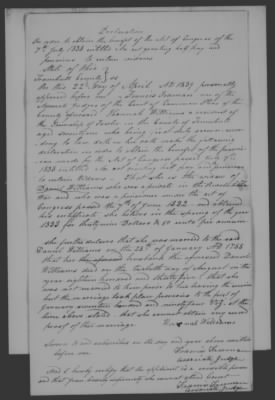 Declaration
In order to obtain the benefit of the Act of Congress of the
7th July 1838 entitled An act granting half pay and
pensions to certain widows
State of Ohio
Trumbull County ss
On this 22nd day of April AD 1839 personally
appeared before me Francis Freeman one of the
Judges of the Court of Common Pleas of the
County aforesaid Hannah Williams a resident of
the Township of in the County of Trumbull
aged seventy who being first duly sworn accor-
ding to law doth on her oath make the following
declaration in order to obtain the benefit of the provis-
ion made by the Act of Congress passed July 7th
1838 entitled An act granting half pay and pensions
to certain widows that she is the widow of
Daniel Williams who was a private in the Revolutionary
War and who was a pensioner under the act of
Congress passed the 7th of June 1832 and obtained
his certificate she believes in the spring of the year
1833 for thirty nine Dollars & 80 cents per annum
She further declares that she was married to the said
Daniel Williams on the of January AD 1788
that her husband the aforesaid Daniel
Williams died on the twelfth day of August in the
year eighteen hundred and thirty five that she
was not married to him prior to his leaving the service
but the marriage took place previous to the first of
January seventeen hundred and ninety four viz. at the
time above stated that she cannot obtain any record
proof of this marriage Hannah Williams
Sworn to and subscribed on the day and year above written
before me Francis Freeman
Associate Judge
And I hereby certify that the applicant is a
and that from bodily infirmity she cannot attend court
Francis Freeman
Associate Judge